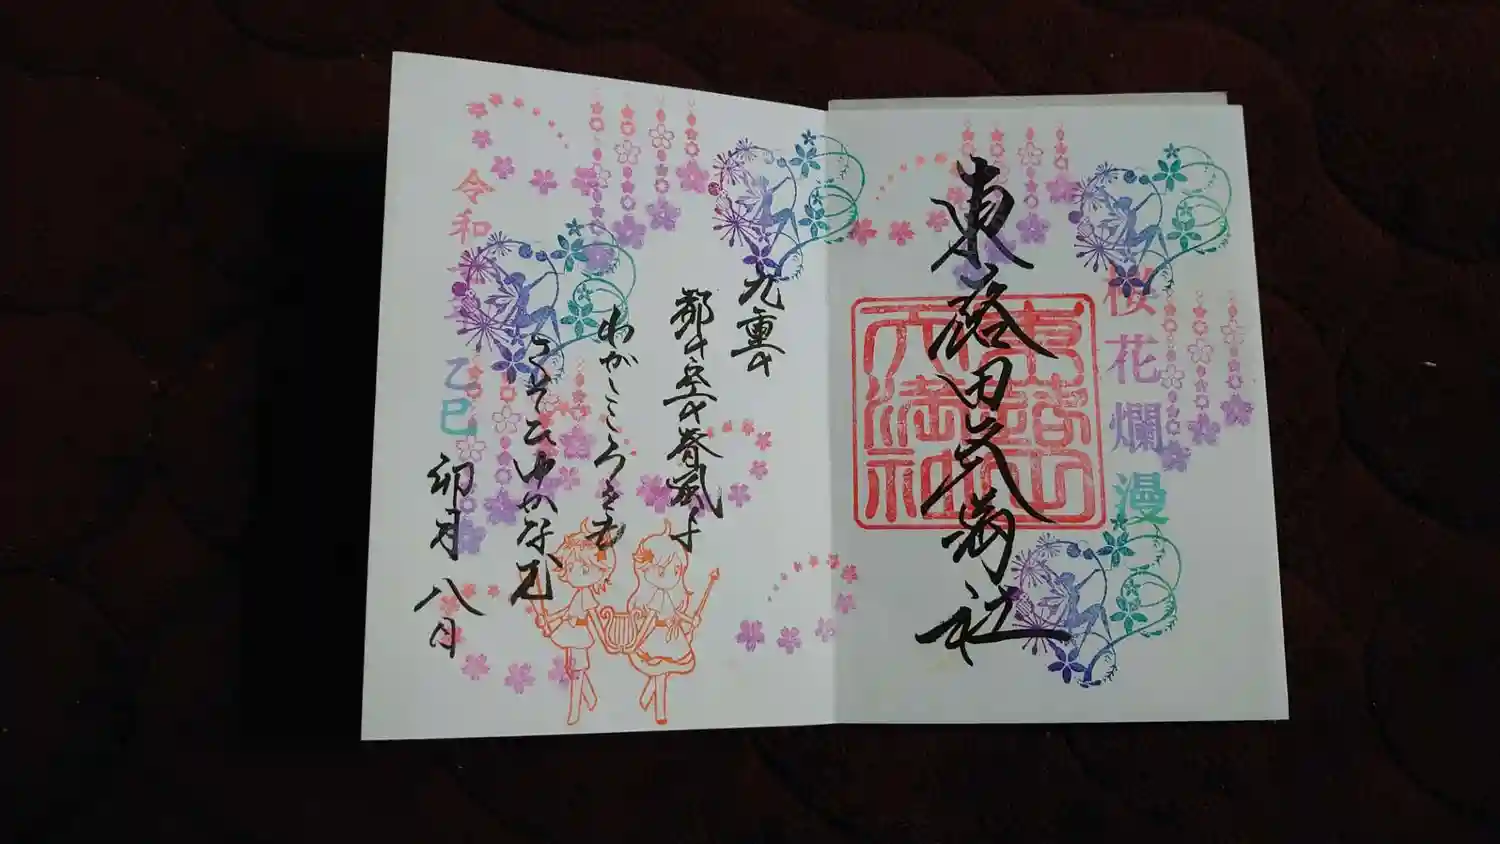 桜花爛漫
東蕗田天満社
東蕗田
天満社
九重の
都の空の春風よ
わがこころをも
さそひゆかなむ
卯月八日
令和
乙巳